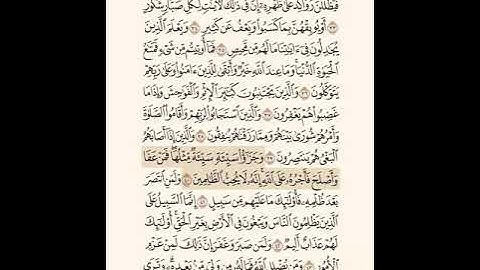 فَيَظْلَلْنَ رَوَاكِدَ عَلَىٰ ظَهْرِهِۦٓ إِنَّ فِى ذَٰلِكَ لَءَايَٰتٍ لِّكُلِّ صَبَّارٍ شَكُورٍ
٣٣ أَوْ يُوبِقْهُنَّ بِمَا كَسَبُوا۟ وَيَعْفُ عَن كَثِيرٍ ٣٤ وَيَعْلَمَ ٱلَّذِينَ
يُجَٰدِلُونَ فِىٓ ءَايَٰتِنَا مَا لَهُم مِّن مَّحِيصٍ ٣٥ فَمَآ أُوتِيتُم مِّن شَىْءٍ فَمَتَٰعُ
ٱلْحَيَوٰةِ ٱلدُّنْيَا وَمَا عِندَ ٱللَّهِ خَيْرٌ وَأَبْقَىٰ لِلَّذِينَ ءَامَنُوا۟ وَعَلَىٰ رَبِّهِمْ
يَتَوَكَّلُونَ ٣٦ وَٱلَّذِينَ يَجْتَنِبُونَ كَبَٰٓئِرَ ٱلْإِثْمِ وَٱلْفَوَٰحِشَ وَإِذَا مَا
غَضِبُوا۟ هُمْ يَغْفِرُونَ ٣٧ وَٱلَّذِينَ ٱسْتَجَابُوا۟ لِرَبِّهِمْ وَأَقَامُوا۟ ٱلصَّلَوٰةَ
وَأَمْرُهُمْ شُورَىٰ بَيْنَهُمْ وَمِمَّا رَزَقْنَٰهُمْ يُنفِقُونَ ٣٨ وَٱلَّذِينَ إِذَآ أَصَابَهُمُ
ٱلْبَغْىُ هُمْ يَنتَصِرُونَ ٣٩ وَجَزَٰٓؤُا۟ سَيِّئَةٍ سَيِّئَةٌ مِّثْلُهَا فَمَنْ عَفَا
وَأَصْلَحَ فَأَجْرُهُۥ عَلَى ٱللَّهِ إِنَّهُۥ لَا يُحِبُّ ٱلظَّٰلِمِينَ ٤٠ وَلَمَنِ ٱنتَصَرَ
بَعْدَ ظُلْمِهِۦ فَأُو۟لَٰٓئِكَ مَا عَلَيْهِم مِّن سَبِيلٍ ٤١ إِنَّمَا ٱلسَّبِيلُ عَلَى
ٱلَّذِينَ يَظْلِمُونَ ٱلنَّاسَ وَيَبْغُونَ فِى ٱلْأَرْضِ بِغَيْرِ ٱلْحَقِّ أُو۟لَٰٓئِكَ
لَهُمْ عَذَابٌ أَلِيمٌ ٤٢ وَلَمَن صَبَرَ وَغَفَرَ إِنَّ ذَٰلِكَ لَمِنْ عَزْمِ
ٱلْأُمُورِ ٤٣ وَمَن يُضْلِلِ ٱللَّهُ فَمَا لَهُۥ مِن وَلِىٍّ مِّنۢ بَعْدِهِۦ وَتَرَى